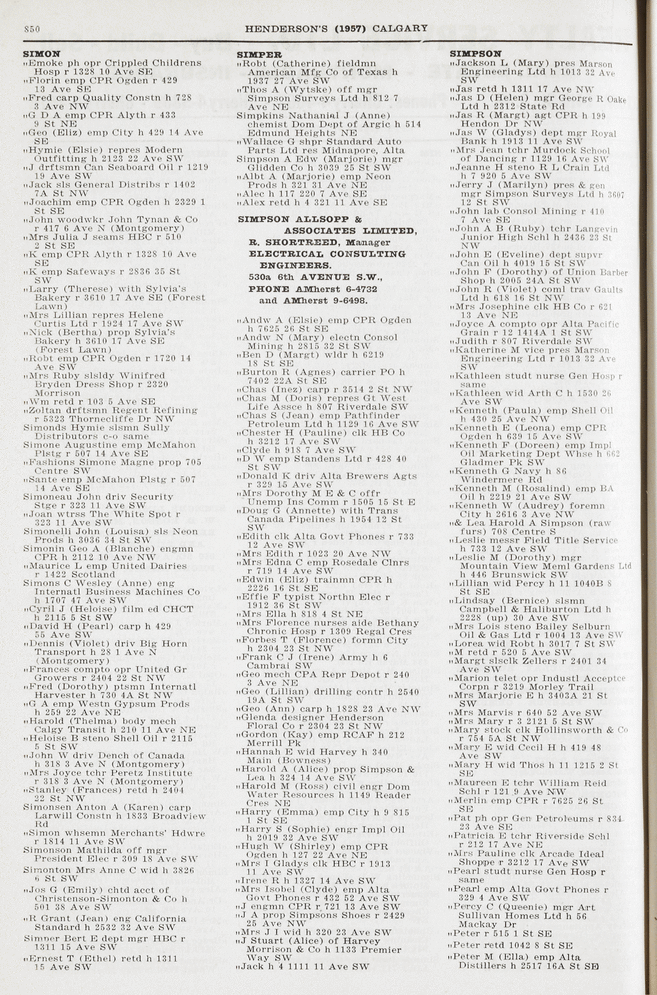 850
HENDERSON'S (1957) CALGARY
SIMON
"Emoke ph opr Crippled Childrens
Hosp r 1328 10 Ave SE
"Florin emp CPR Ogden r 429
13 Ave SE
"Fred carp Quality Constn h 728
3 Ave NW
"G D A emp CPR Alyth r 433
9 St NE
"Geo (Eliz) emp City h 429 14 Ave
SE
"Hymie (Elsie) repres Modern
Outfitting h 2123 22 Ave SW
"J drftsmn Can Seaboard Oil r 1219
19 Ave SW
"Jack sls General Distribs r 1402
7A St NW
"Joachim emp CPR Ogden h 2329 1
St SE
"John woodwkr John Tynan & Co
r 417 6 Ave N (Montgomery)
"Mrs Julia J seams HBC r 510
2 St SE
"K emp CPR Alyth r 1328 10 Ave
SE
"K emp Safeways r 2836 35 St
SW
"Larry (Therese) with Sylvia's
Bakery r 3610 17 Ave SE (Forest
Lawn)
"Mrs Lillian repres Helene
Curtis Ltd r 1924 17 Ave SW
"Nick (Bertha) prop Sylvia's
Bakery h 3610 17 Ave SE
(Forest Lawn)
"Robt emp CPR Ogden r 1720 14
Ave SW
"Mrs Ruby slsldy Winifred
Bryden Dress Shop r 2320
Morrison
"Wm retd r 103 5 Ave SE
"Zoltan drftsmn Regent Refining
r 5323 Thorncliffe Dr NW
Simonds Hymie slsmn Sully
Distributors c-o same
Simone Augustine emp McMahon
Plstg r 507 14 Ave SE
"Fashions Simone Magne prop 705
Centre SW
"Sante emp McMahon Plstg r 507
14 Ave SE
Simoneau John driv Security
Stge r 323 11 Ave SW
"Joan wtrss The White Spot r
323 11 Ave SW
Simonelli John (Louisa) sls Neon
Prods h 3036 34 St SW
Simonin Geo A (Blanche) engmn
CPR h 2112 10 Ave NW
"Maurice L emp United Dairies
r 1422 Scotland
Simons C Wesley (Anne) eng
Internatl Business Machines Co
h 1707 47 Ave SW
"Cyril J (Heloise) film ed CHCT
h 2115 5 St SW
"David H (Pearl) carp h 429
55 Ave SW
"Dennis (Violet) driv Big Horn
Transport h 28 1 Ave N
(Montgomery)
"Frances compto opr United Gr
Growers r 2404 22 St NW
"Fred (Dorothy) ptsmn Internatl
Harvester h 730 4A St NW
"G A emp Westn Gypsum Prods
h 259 22 Ave NE
"Harold (Thelma) body mech
Calgy Transit h 210 11 Ave NE
"Heloise B steno Shell Oil r 2115
5 St SW
"John W driv Dench of Canada
h 318 3 Ave N (Montgomery)
"Mrs Joyce tchr Peretz Institute
r 318 3 Ave N (Montgomery)
"Stanley (Frances) retd h 2404
22 St NW
Simonsen Anton A (Karen) carp
Larwill Constn h 1833 Broadview
Rd
"Simon whsemn Merchants' Hdwre
r 1814 11 Ave SW
Simonson Mathilda off mgr
President Elec r 309 18 Ave SW
Simonton Mrs Anne C wid h 3826
6 St SW
"Jos G (Emily) chtd acct of
Christenson-Simonton & Co h
501 38 Ave SW
"R Grant (Jean) eng California
Standard h 2532 32 Ave SW
Simner Bert E dept mgr HBC r
1311 15 Ave SW
"Ernest T (Ethel) retd h 1311
15 Ave SW
SIMPER
"Robt (Catherine) fieldmn
American Mfg Co of Texas h
1937 27 Ave SW
"Thos A (Wytske) off mgr
Simpson Surveys Ltd h 812 7
Ave NE
Simpkins Nathanial J (Anne)
chemist Dom Dept of Argic h 514
Edmund Heights NE
"Wallace G shpr Standard Auto
Parts Ltd res Midnapore, Alta
Simpson A Edw (Marjorie) mgr
Glidden Co h 3039 25 St SW
"Albt A (Marjorie) emp Neon
Prods h 321 31 Ave NE
"Alec h 117 220 7 Ave SE
"Alex retd h 4 321 11 Ave SE
SIMPSON ALLSOPP &
ASSOCIATES LIMITED,
R. SHORTREED, Manager
ELECTRICAL CONSULTING
ENGINEERS.
530a 6th AVENUE S.W.,
PHONE AMherst 6-4732
and AMherst 9-6498.
"Andw A (Elsie) emp CPR Ogden
h 7625 26 St SE
"Andw N (Mary) electn Consol
Mining h 2815 32 St SW
"Ben D (Margt) wldr h 6219
18 St SE
"Burton R (Agnes) carrier PO h
7402 22A St SE
"Chas (Inez) carp r 3514 2 St NW
"Chas M (Doris) repres Gt West
Life Assce h 807 Riverdale SW
"Chas S (Jean) emp Pathfinder
Petroleum Ltd h 1129 16 Ave SW
"Chester H (Pauline) clk HB Co
h 3212 17 Ave SW
"Clyde h 918 7 Ave SW
"D W emp Standens Ltd r 428 40
St SW
"Donald K driv Alta Brewers Agts
r 329 15 Ave SW
"Mrs Dorothy M E & C offr
Unemp Ins Comm r 1505 15 St E
"Doug G (Annette) with Trans
Canada Pipelines h 1954 12 St
SW
"Edith clk Alta Govt Phones r 733
12 Ave SW
"Mrs Edith r 1023 20 Ave NW
"Mrs Edna C emp Rosedale Clnrs
r 719 14 Ave SW
"Edwin (Eliz) trainmn CPR h
2226 16 St SE
"Effie F typist Northn Elec r
1912 36 St SW
"Mrs Ella h 818 4 St NE
"Mrs Florence nurses aide Bethany
Chronic Hosp r 1309 Regal Cres
"Forbes T (Florence) formn City
h 2304 23 St NW
"Frank C J (Irene) Army h 6
Cambrai SW
"Geo mech CPA Repr Depot r 240
3 Ave NE
"Geo (Lillian) drilling contr h 2540
19A St SW
"Geo (Ann) carp h 1828 23 Ave NW
"Glenda designer Henderson
Floral Co r 2304 23 St NW
"Gordon (Kay) emp RCAF h 212
Merrill Pk
"Hannah E wid Harvey h 340
Main (Bowness)
"Harold A (Alice) prop Simpson &
Lea h 324 14 Ave SW
"Harold M (Ross) civil engr Dom
Water Resources h 1149 Reader
Cres NE
"Harry (Emma) emp City h 9 815
1 St SE
"Harry S (Sophie) engr Impl Oil
h 2019 32 Ave SW
"Hugh W (Shirley) emp CPR
Ogden h 127 22 Ave NE
"Mrs I Gladys clk HBC r 1913
11 Ave SW
"Irene R h 1327 14 Ave SW
"Mrs Isobel (Clyde) emp Alta
Govt Phones r 432 52 Ave SW
"J engmn CPR r 721 13 Ave SW
"J A prop Simpsons Shoes r 2429
25 Ave NW
"Mrs J I wid h 320 23 Ave SW
"J Stuart (Alice) of Harvey
Morrison & Co h 1133 Premier
Way SW
"Jack h 4 1111 11 Ave SW
SIMPSON
"Jackson L (Mary) pres Marson
Engineering Ltd h 1013 32 Ave
SW
"Jas retd h 1311 17 Ave NW
"Jas D (Helen) mgr George R Oake
Ltd h 2312 State Rd
"Jas R (Margt) agt CPR h 199
Hendon Dr NW
"Jas W (Gladys) dept mgr Royal
Bank h 1913 11 Ave SW
"Mrs Jean tchr Murdock School
of Dancing r 1129 16 Ave SW
"Jeanne H steno R L Crain Ltd
h 7 920 5 Ave SW
"Jerry J (Marilyn) pres & gen
mgr Simpson Surveys Ltd h 3607
12 St SW
"John lab Consol Mining r 410
7 Ave SE
"John A B (Ruby) tchr Langevin
Junior High Schl h 2436 23 St
NW
"John E (Eveline) dept supvr
Can Oil h 4019 15 St SW
"John F (Dorothy) of Union Barber
Shop h 2005 24A St SW
"John R (Violet) coml trav Gaults
Ltd h 618 16 St NW
"Mrs Josephine clk HB Co r 621
13 Ave NE
"Joyce A compto opr Alta Pacific
Grain r 12 1414A 1 St SW
"Judith r 807 Riverdale SW
"Katherine M vice pres Marson
Engineering Ltd r 1013 32 Ave
SW
"Kathleen studt nurse Gen Hosp r
same
"Kathleen wid Arth C h 1530 26
Ave SW
"Kenneth (Paula) emp Shell Oil
h 430 25 Ave NW
"Kenneth E (Leona) emp CPR
Ogden r 639 15 Ave SW
"Kenneth F (Doreen) emp Impl
Oil Marketing Dept Whse h 662
Gladmer Pk SW
"Kenneth G Navy h 86
Windermere Rd
"Kenneth M (Rosalind) emp BA
Oil h 2219 21 Ave SW
"Kenneth W (Audrey) foremn
City h 2616 3 Ave NW
"& Lea Harold A Simpson (raw
furs) 708 Centre S
"Leslie messr Field Title Service
h 733 12 Ave SW
"Leslie M (Dorothy) mgr
Mountain View Meml Gardens Ltd
h 446 Brunswick SW
"Lillian wid Percy h 11 1040B 8
St SE
"Lindsay (Bernice) slsmn
Campbell & Haliburton Ltd h
2228 (up) 30 Ave SW
"Mrs Lois steno Bailey Selburn
Oil & Gas Ltd r 1004 13 Ave SW
"Lorea wid Robt h 3017 7 St SW
"M retd r 520 5 Ave SW
"Margt slsclk Zellers r 2401 34
Ave SW
"Marion telet opr Industl Acceptce
Corpn r 3219 Morley Trail
"Mrs Marjorie E h 3403A 21 St
SW
"Mrs Marvis r 640 52 Ave SW
"Mrs Mary r 3 2121 5 St SW
"Mary stock clk Hollinsworth & Co
r 754 5A St NW
"Mary E wid Cecil H h 419 48
Ave SW
"Mary H wid Thos h 11 1215 2 St
SE
"Maureen E tchr William Reid
Schl r 121 9 Ave NW
"Merlin emp CPR r 7625 26 St
SE
"Pat ph opr Gen Petroleums r 834
23 Ave SE
"Patricia E tchr Riverside Schl
r 212 17 Ave NE
"Mrs Pauline clk Arcade Ideal
Shoppe r 3212 17 Ave SW
"Pearl studt nurse Gen Hosp r
same
"Pearl emp Alta Govt Phones r
329 4 Ave SW
"Percy C (Queenie) mgr Art
Sullivan Homes Ltd h 56
Mackay Dr
"Peter r 515 1 St SE
"Peter retd 1042 8 St SE
"Peter M (Ella) emp Alta
Distillers h 2517 16A St SE